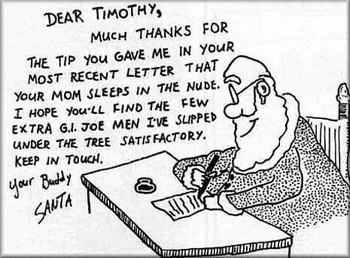 DEAR TIMOTHY,
MUCH THANKS FOR
THE TIP YOU GAVE ME IN YOUR
MOST RECENT LETTER THAT
YOUR MOM SLEEPS IN THE NUDE.
I HOPE YOU'LL FIND THE FEW
EXTRA G.I. JOE MEN I'VE SLIPPED
UNDER THE TREE SATISFACTORY.
KEEP IN TOUCH.
Your Buddy
SANTA